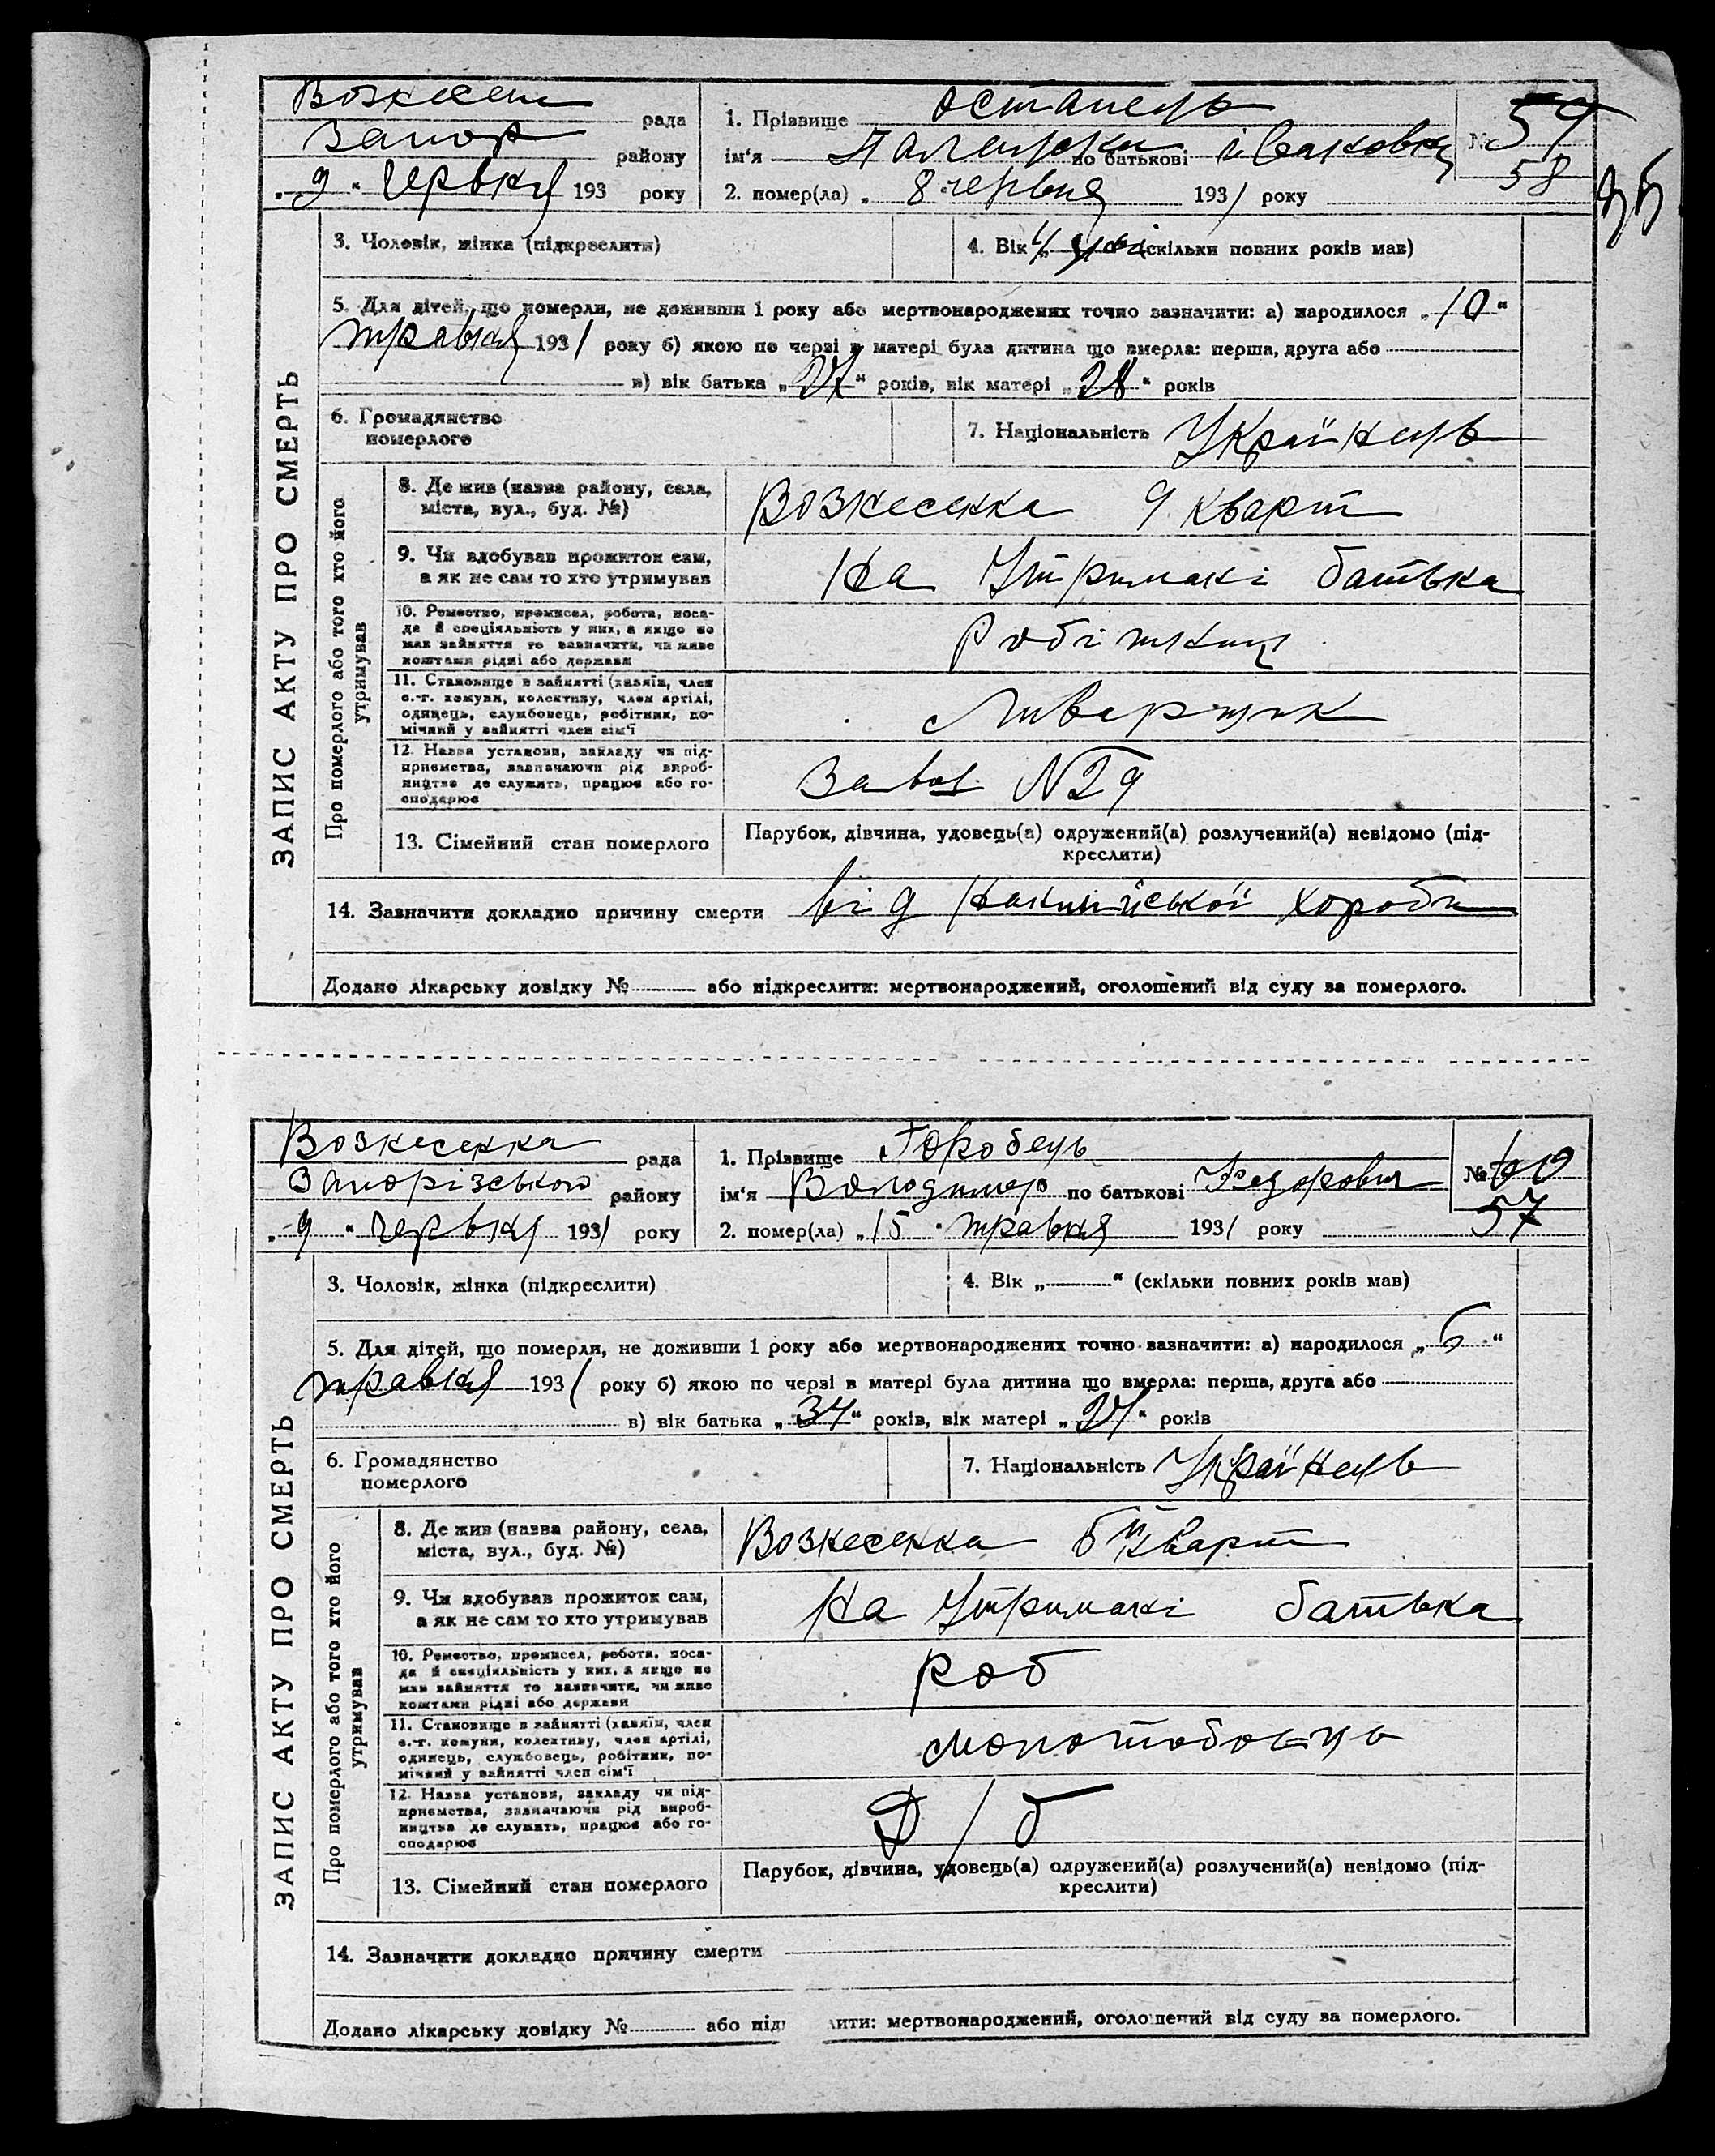 Вознесен рада
Запор району
„ 9 “ червня 193 року
1. Прізвище Остапець
ім'я по батькові Івановна
2. помер(ла) „ 8 червня 1931 року
№ 59
58
3. Чоловік, жінка (підкреслити)
4. Вік „ “ (скільки повних років мав)
5. Для дітей, що померли, не доживши 1 року або мертвонароджених точно зазначити: а) народилося „10“
травня 1931 року б) якою по черзі в матері була дитина що вмерла: перша, друга або
в) вік батька „27“ років, вік матері „28“ років
6. Громадянство
померлого
7. Національність Українець
ЗАПИС АКТУ ПРО СМЕРТЬ
Про померлого або того хто його
утримував
8. Де жив (назва району, села,
міста, вул., буд. №)
Вознесенка 9 кварт
9. Чи здобував прожиток сам,
а як не сам то хто утримував
На Утримані батька
10. Ремество, промисел, робота, поса-
да й спеціяльність у них, а якщо не
мав зайняття то зазначити, чи живе
коштами рідні або держави
Робітниця
11. Становище в зайнятті (хазяїн, член
с.-г. комуни, колективу, член артілі,
одинець, службовець, робітник, по-
мічний у зайнятті член сім'ї
Ливарщик
12. Назва установи, закладу чи під-
приємства, зазначаючи рід вироб-
ництва де служить, працює або го-
сподарює
Завод N29
13. Сімейний стан померлого
Парубок, дівчина, удовець(а) одружений(а) розлучений(а) невідомо (під-
креслити)
14. Зазначити докладно причину смерти від хороби
Додано лікарську довідку № або підкреслити: мертвонароджений, оголошений від суду за померлого.
Вознесенка рада
Запорізського району
„ 9 “ червня 1931 року
1. Прізвище Горобець
ім'я Володимер по батькові Федорович
2. помер(ла) „15“ травня 1931 року
№ 60
57
3. Чоловік, жінка (підкреслити)
4. Вік „ “ (скільки повних років мав)
5. Для дітей, що померли, не доживши 1 року або мертвонароджених точно зазначити: а) народилося „6“
травня 1931 року б) якою по черзі в матері була дитина що вмерла: перша, друга або
в) вік батька „34“ років, вік матері „ “ років
6. Громадянство
померлого
7. Національність Українець
ЗАПИС АКТУ ПРО СМЕРТЬ
Про померлого або того хто його
утримував
8. Де жив (назва району, села,
міста, вул., буд. №)
Вознесенка кварт
9. Чи здобував прожиток сам,
а як не сам то хто утримував
На Утримані батька
10. Ремество, промисел, робота, поса-
да й спеціяльність у них, а якщо не
мав зайняття то зазначити, чи живе
коштами рідні або держави
Роб
11. Становище в зайнятті (хазяїн, член
с.-г. комуни, колективу, член артілі,
одинець, службовець, робітник, по-
мічний у зайнятті член сім'ї
12. Назва установи, закладу чи під-
приємства, зазначаючи рід вироб-
ництва де служить, працює або го-
сподарює
Д/б
13. Сімейний стан померлого
Парубок, дівчина, удовець(а) одружений(а) розлучений(а) невідомо (під-
креслити)
14. Зазначити докладно причину смерти
Додано лікарську довідку № або під лити: мертвонароджений, оголошений від суду за померлого.